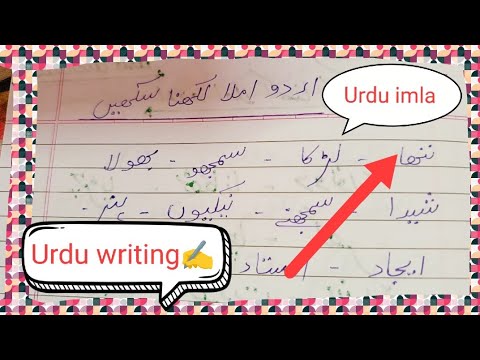 اردو املا لکھنا سکھیں
Urdu imla
ننھا - لڑکا - سمجھو - بھولا
شیدا - سمجھنے - نیکیوں -
Urdu writing✍
ایجاد - استاد